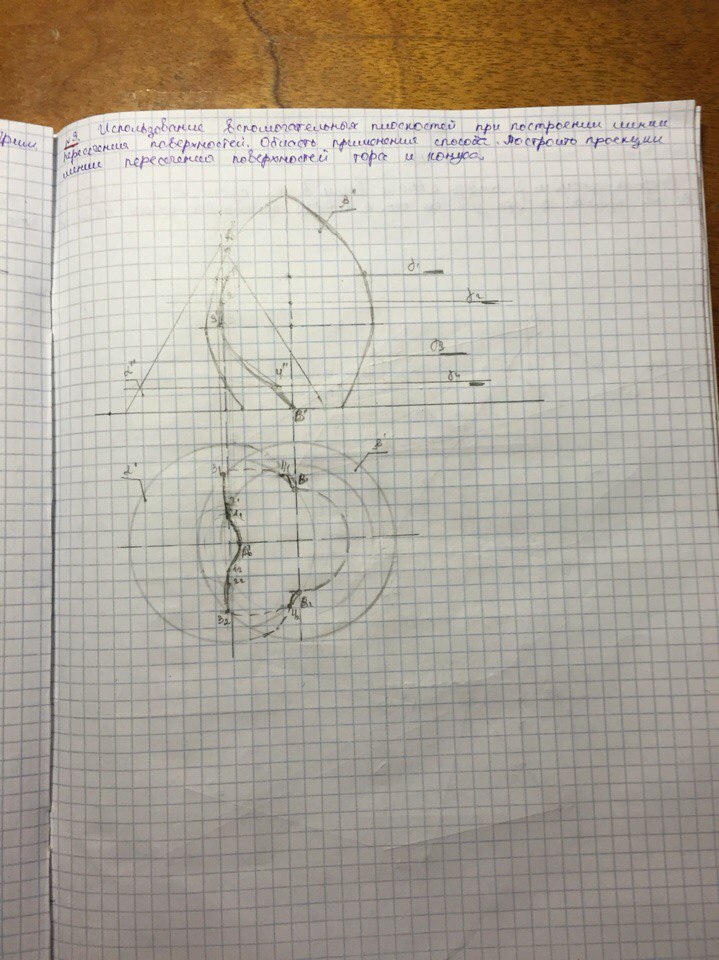 №9. Использование вспомогательных плоскостей при построении линии
пересечения поверхностей. Область применения способа. Построить проекции
линии пересечения поверхностей тора и конуса.
β''
γ1
γ2
3
γ3
4''
γ4
α''
B''
α'
β'
3₁
4₁
B₁
1₁
1₂
2₂
3₂
B₂